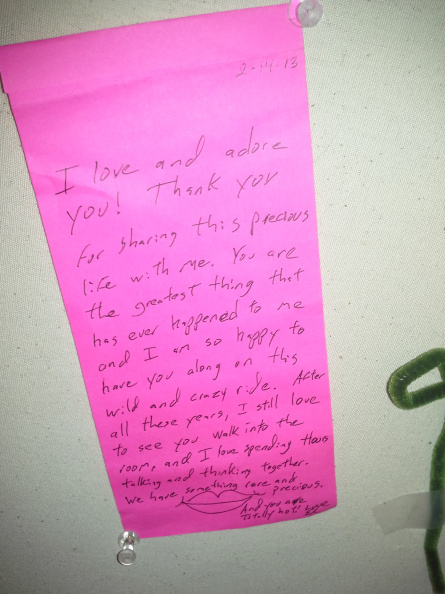 2-14-13
I love and adore
you! Thank you
for sharing this precious
life with me. You are
the greatest thing that
has ever happened to me
and I am so happy to
have you along on this
wild and crazy ride. After
all these years, I still love
to see you walk into the
room, and I love spending hours
talking and thinking together.
We have something rare and
precious.
And you are
totally hot!